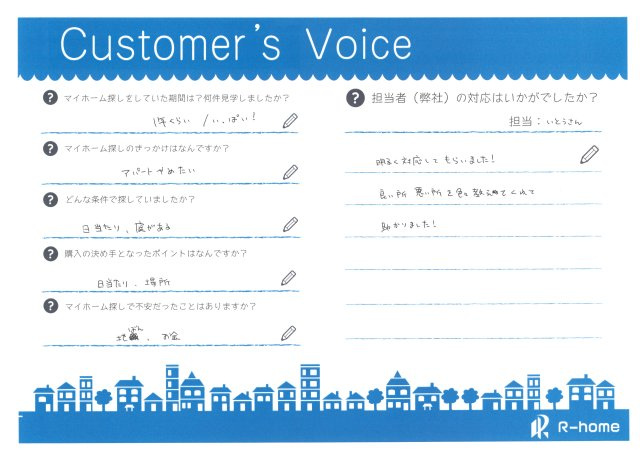 Customer's Voice
マイホーム探しをしていた期間は?何件見学しましたか?
1年くらい / いっぱい!
マイホーム探しのきっかけはなんですか?
アパートせめたい
どんな条件で探していましたか?
日当たり、庭がある
購入の決め手となったポイントはなんですか?
日当たり、場所
マイホーム探しで不安だったことはありますか?
地ばん、お金
担当者(弊社)の対応はいかがでしたか?
担当:いとうさん
明るく対応してもらいました!
良い所 悪い所を色々教えてくれて
助かりました!
R-home